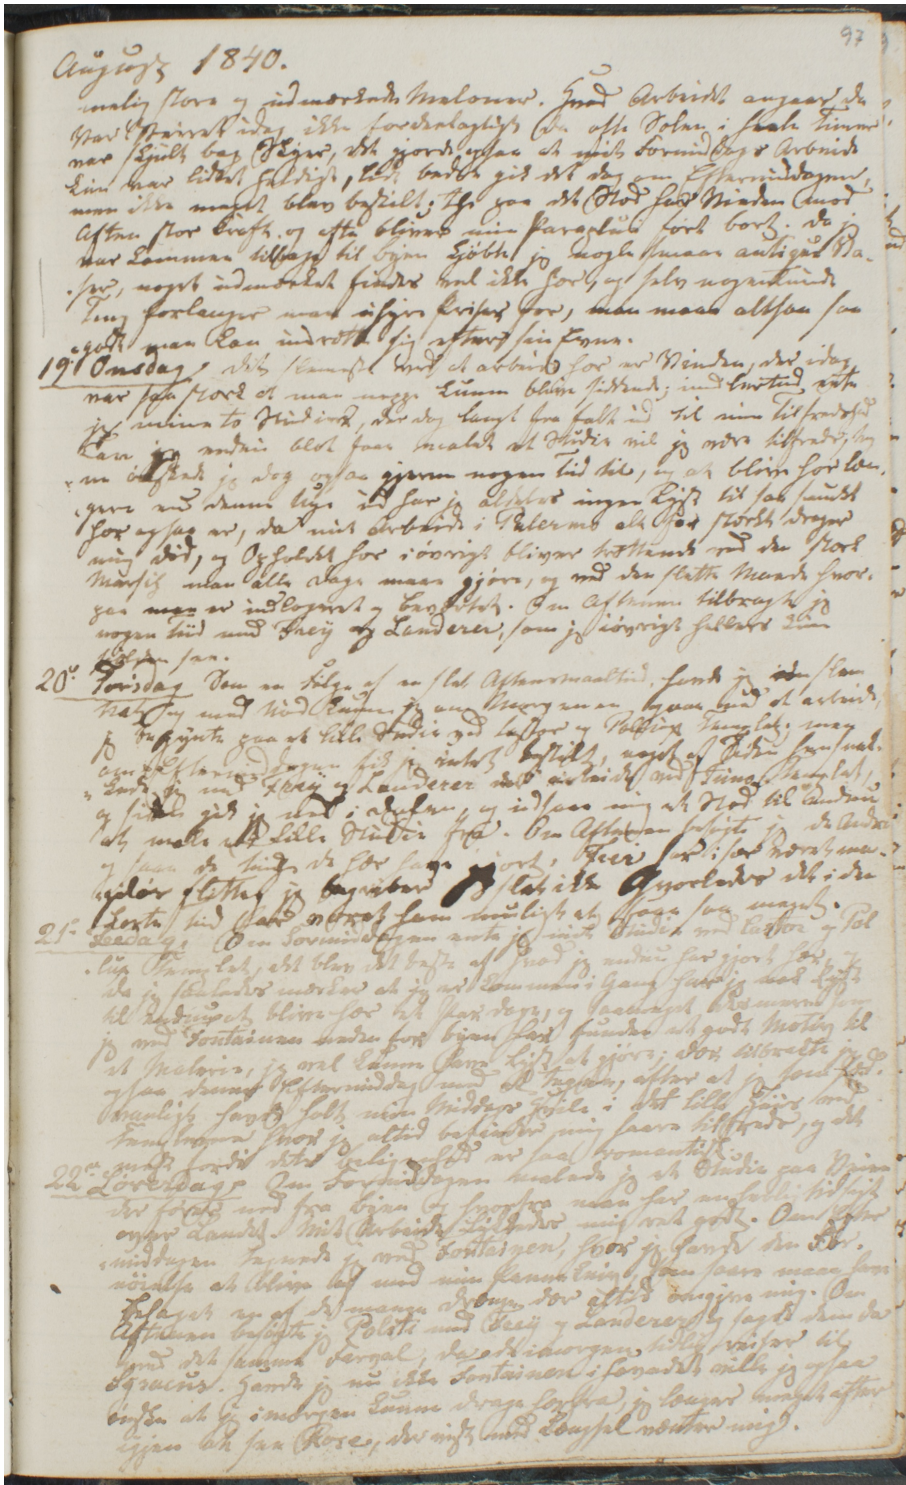 97
August 1840.
melig store og udmærkede Meloner. Hvad Arbeidet angaaer, da
var Veiret idag ikke fordeelagtigt da ofte Solen i heele Timer
var skjult bag Skyer, det gjorde ogsaa at mit Formiddags Arbeide
kun var lidet heldigt, lidt bedre gik det dog om Eftermiddagen,
men ikke meget blev bestilt; thi paa det Sted har Vinden mod
Aften stor Kraft og ofte bliver min Paraplui ført bort. Da jeg
var kommen tilbage til byen kjøbte jeg nogle smaae antique Va-
ser, noget udmærket findes vel ikke her, og selv nogenlunde
Ting forlanger man uhyre Priser for, man maae altsaa saa
godt man kan indrette sig efter sin Evne.
19. Onsdag. Det slemmeste ved at arbeide her er Vinden, der idag
var saa stærk at man neppe kunne blive siddende; imidlertid endte
jeg mine to Studier, der dog langt fra faldt ud til min Tilfredshed
kan jeg endnu blot faae malet et Studie vil jeg være tilfreds, teg-
ne ønskede jeg dog ogsaa gjerne nogen Tid til, og at blive her læn-
gere end denne Uge ud har jeg aldeles ingen Lyst til saa smukt
her ogsaa er, da mit arbeide i Palermo alt for stærkt drager
mig did, og Opholdet her iøvrigt bliver trættende ved den stærke
Marsch man alle Dage maae gjøre, og ved den slette Maade hvor-
paa man er indlogeret og beværtet. Om Aftenen tilbragte jeg
nogen Tiid med Frey og Landerer, som jeg iøvrigt hellers kun
sielden seer.
20. Torsdag Som en Følge af en slet Aftensmaaltid, havde jeg en slem
Nat og med Nød kunne jeg om Morgenen gaae ud at arbeide,
jeg begynte paa et lille Studie ved Castor og Pollux Templet; men
om Eftermiddagen fik jeg intet bestilt, noget af Tiden hensnak-
kede jeg med Frey og Landerer der arbeidede ved Juno Templet,
og siden gik jeg ned i Dalen, og udsaae mig et Sted til endnu
at male et lille Studie fra. Om Aftenen besøgte jeg de Andre
og saae de Ting de her have gjort, Frei har især været ma-
geløs flittig, jeg begriber slet ikke hvorledes det i den
korte Tid har været ham muligt at faae saa meget.
21. Fredag. Om Formiddagen endte jeg mit Studie ved Castor og Pol-
lux Templet, det blev det beste af hvad jeg endnu har gjort her, og
da jeg saaledes mærker at jeg er kommen i Gang har jeg nok Lyst
til endnu at blive her et Par Dage, og saameget desmere som
jeg ved Fontainen neden for byen har funden et godt Motiv til
et Malerie, jeg vel kunne have Lyst at gjøre; der tilbragte jeg
ogsaa denne Eftermiddag med at tegne, efter at jeg som sæd-
vanligt havde holdt min Middags Hvile i det lille Huus ved
Templerne hvor jeg altid befinder mig saare tilfreds, og det
meest fordi dets Beliggenhed er saa romantisk.
22. Løverdag. Om Formiddagen malede jeg et Studie paa Veien
der fører ned fra byen og hvorfra man har en herlig Udsigt
over Landet. Mit Arbeide lykkedes mig ret godt. Om Efter-
middagen tegnede jeg ved Fontainen, hvor jeg havde den For-
nøielse at blive af med min Penneknis, som saare maae have
behaget en af de mange Drenge der altid omgive mig. Om
Aftenen besøgte jeg Politi med Frey og Landerer og sagde dem da
med det samme Farvel, da de imorgen tidlig reiser til
Syracus. Havde jeg nu ikke Fontainen i Hovedet vilde jeg ogsaa
ønske at jeg imorgen kunne drage herfra, jeg længes meget efter
igjen at see Rose, der vist med Længsel venter mig.